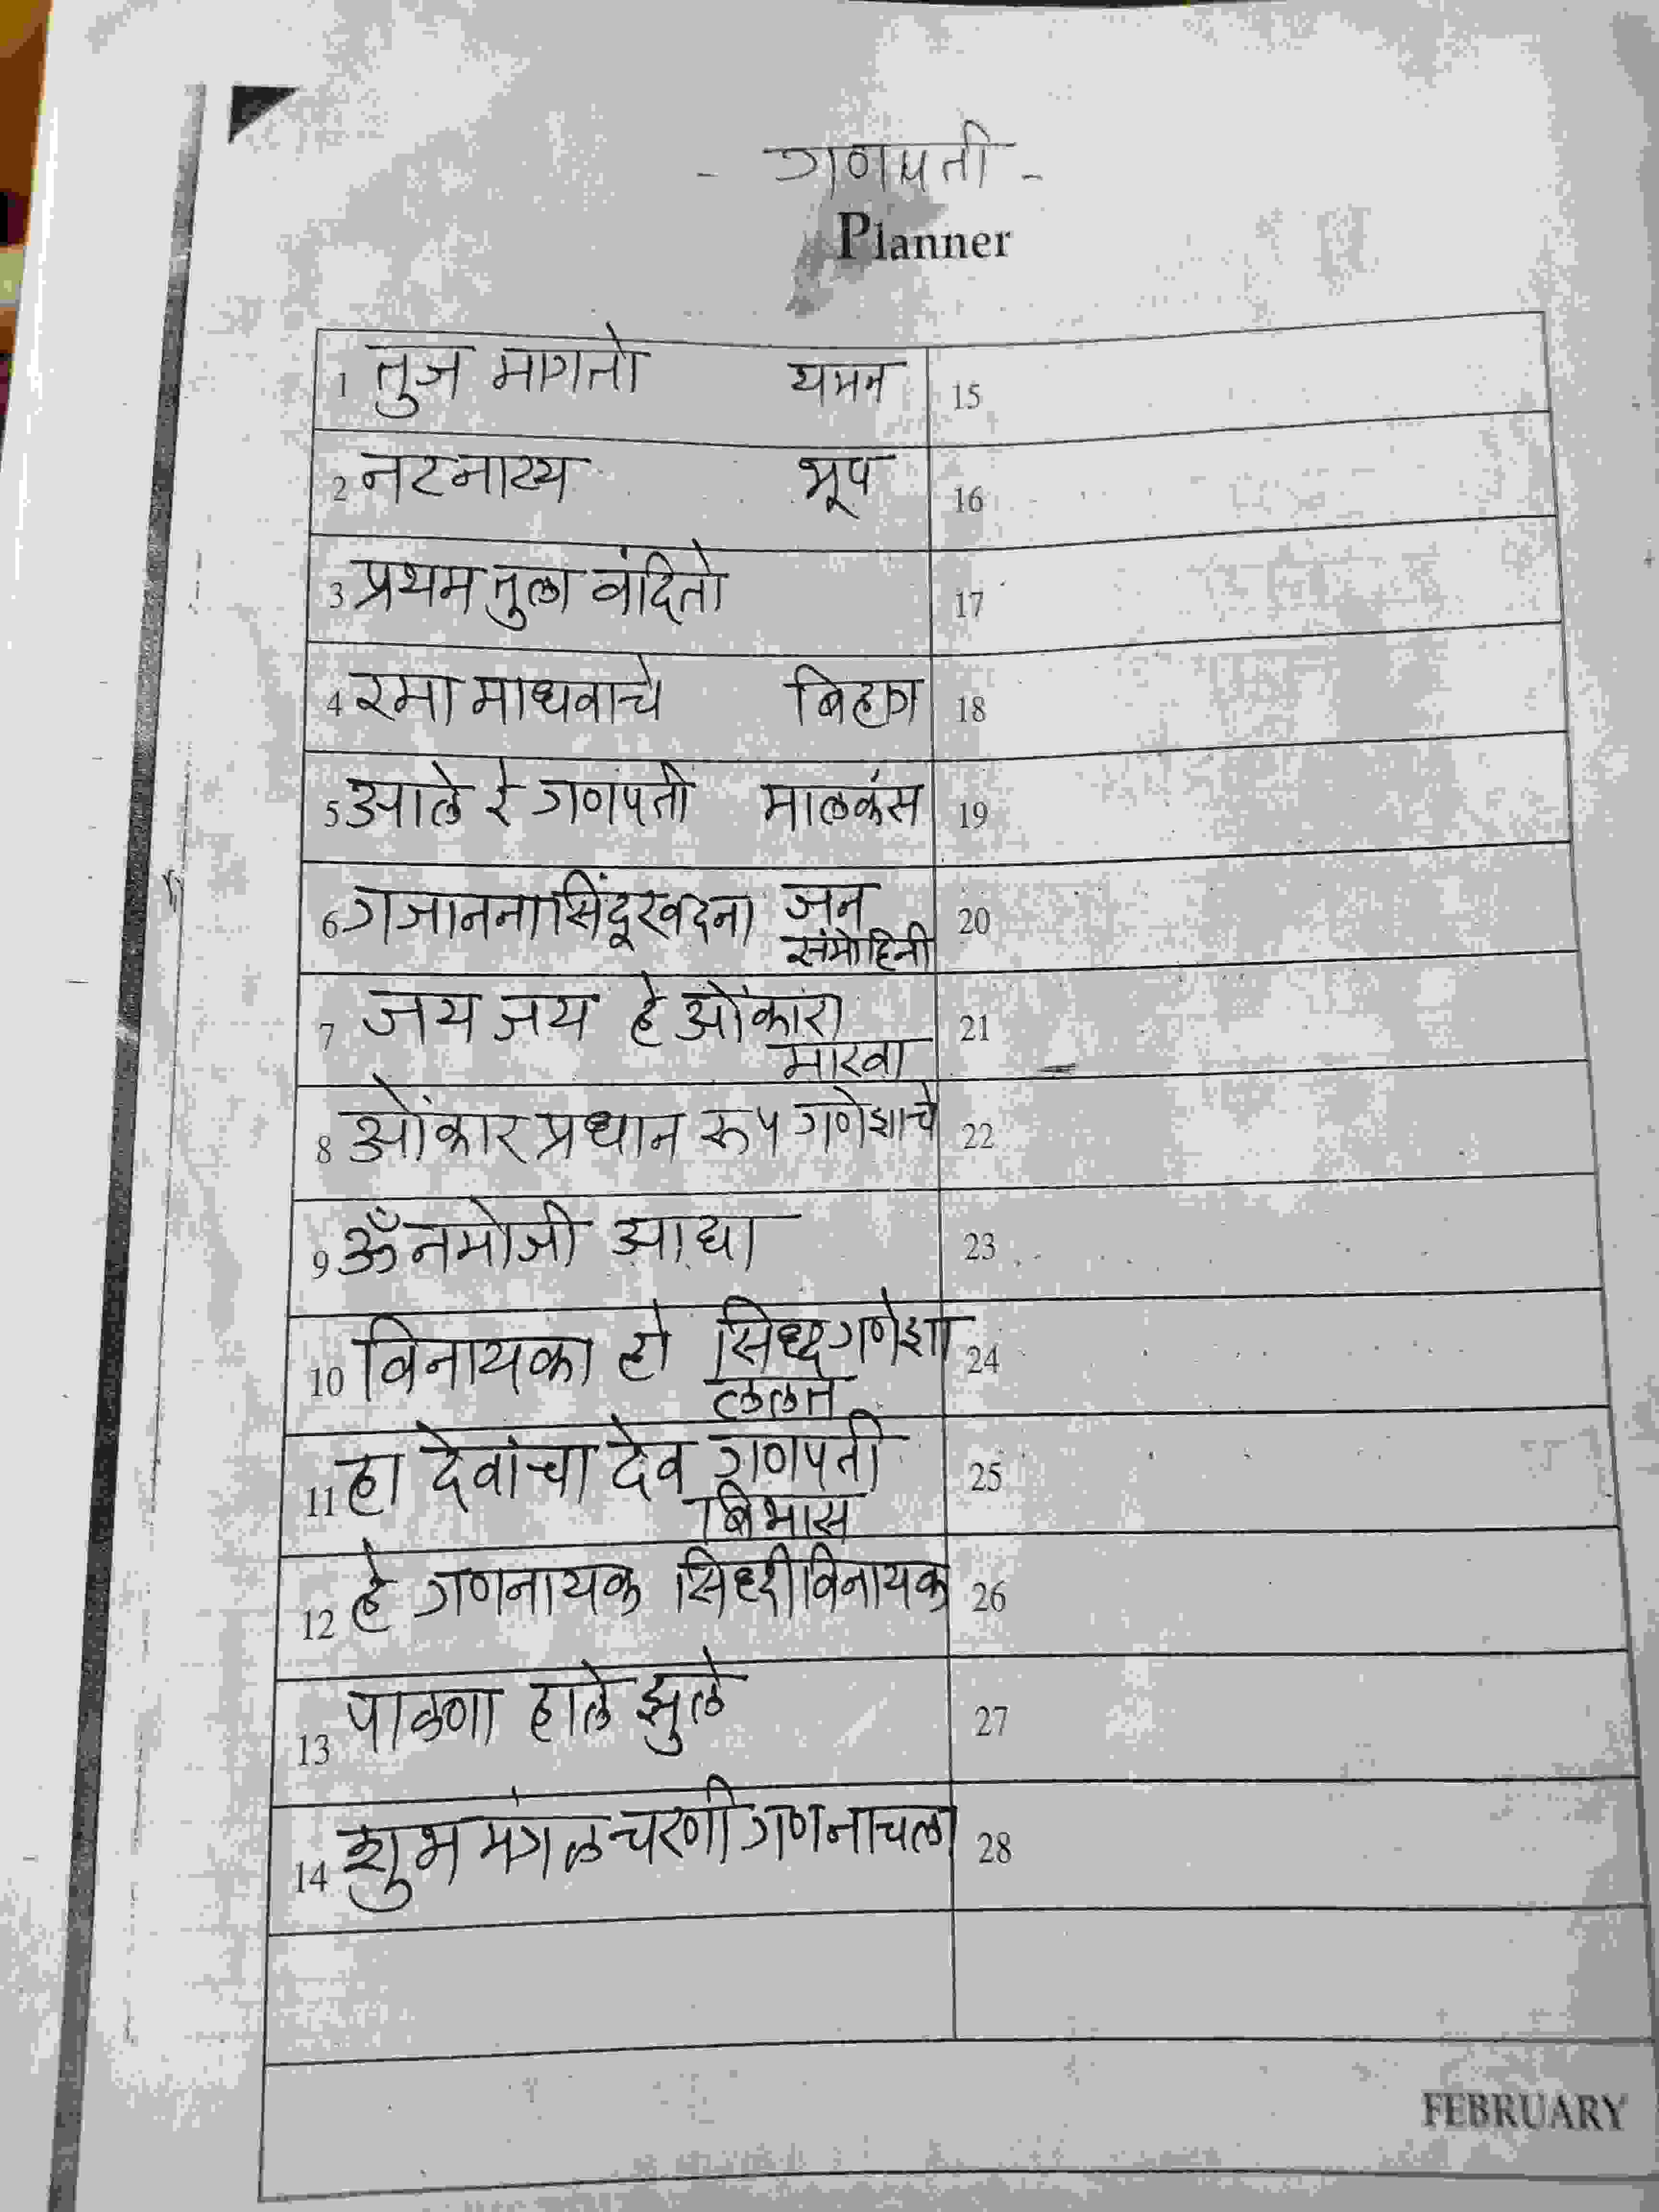 - गणपती -
Planner
1 तुज मागतो यमन
15
2 नटनाट्य भूप
16
3 प्रथम तुला वंदितो
17
4 रमा माधवाचे बिहाग
18
5 आले रे गणपती मालकंस
19
6 गजानना सिंदूरवदना जन
संमोहिनी
20
7 जय जय हे ओंकारा
मारवा
21
8 ओंकार प्रधान रूप गणेशाचे
22
9 ॐ नमोजी आद्या
23
10 विनायका हो सिध्द गणेशा
ललत
24
11 हा देवांचा देव गणपती
बिभास
25
12 हे गणनायक सिध्दीविनायक
26
13 पाळणा हाले झुले
27
14 शुभ मंगल चरणी गण नाचला
28
FEBRUARY